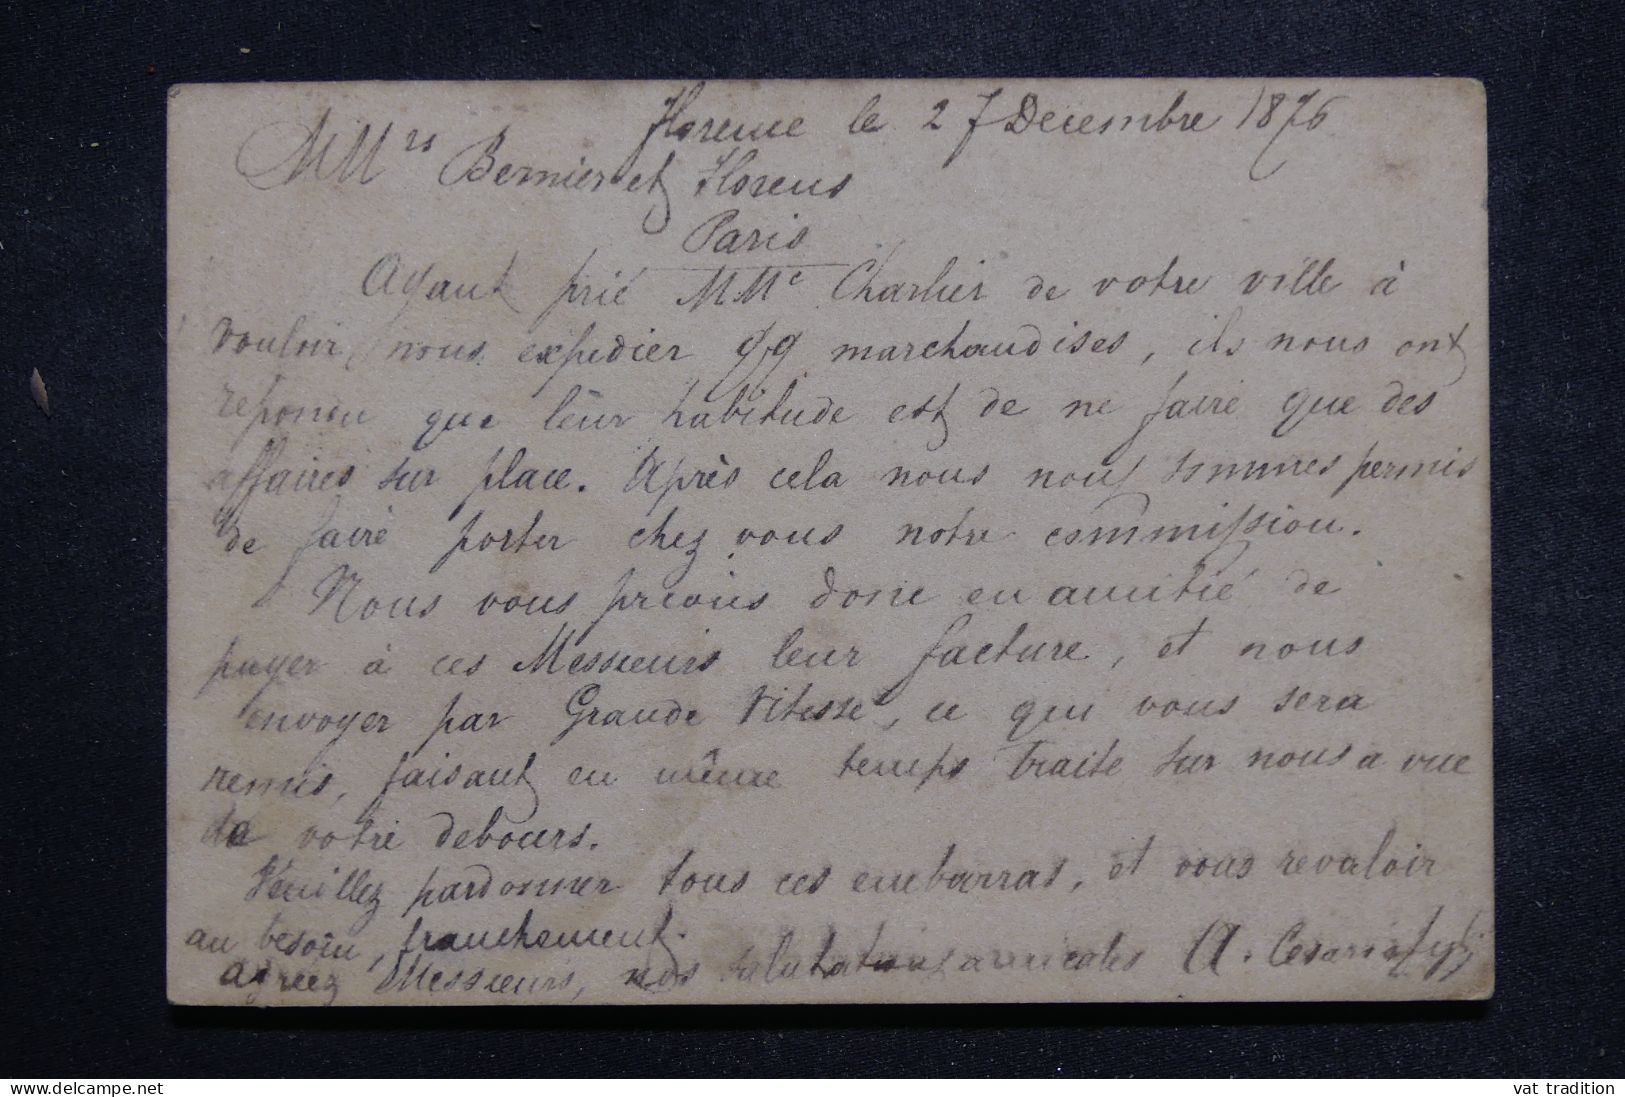 Florence le 27 Decembre 1876
MMrs Bernier et Florens
Paris
Ayant prié MMrs Charlier de votre ville à
vouloir nous expedier qq marchandises, ils nous ont
repondu que leur habitude est de ne faire que des
affaires sur place. Après cela nous nous sommes permis
de faire porter chez vous notre commission.
Nous vous prions donc en amitié de
payer à ces Messieurs leur facture, et nous
envoyer par Grande Vitesse, ce qui vous sera
remis, faisant en même temps traite sur nous a vue
de votre debours.
Veuillez pardonner tous ces embarras, et vous revaloir
au besoin, franchement.
Agreez Messieurs, nos salutations amicales A.
vat tradition
delcampe.net